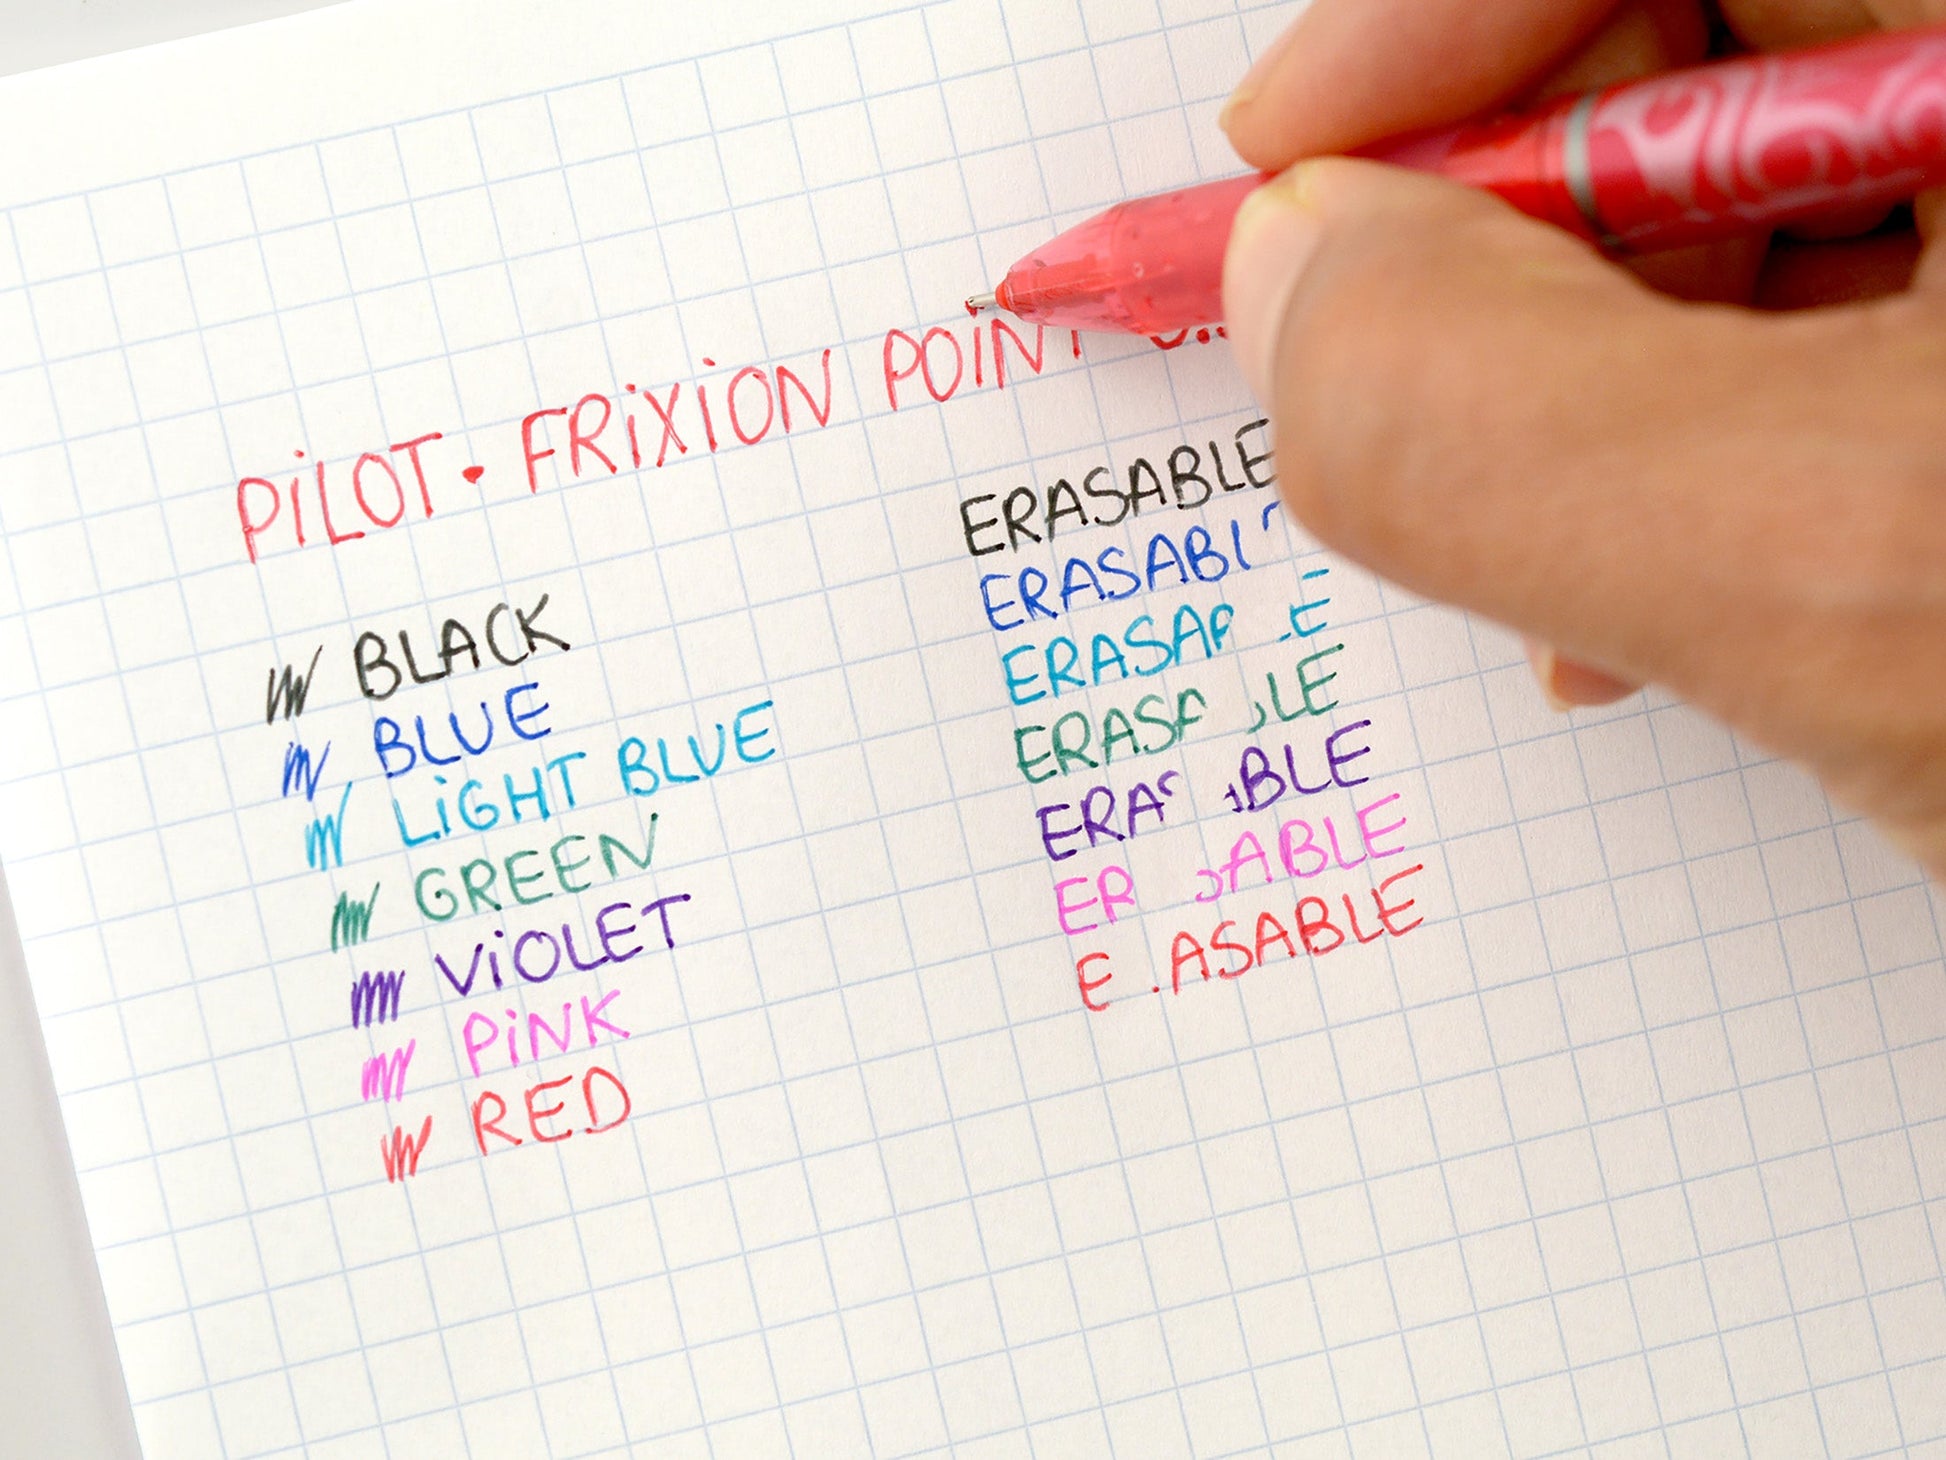 PiLOT • FRiXiON POINT
BLACK
BLUE
LiGHT BLUE
GREEN
ViOLET
PiNK
RED
ERASABLE
ERASABL
ERASA LE
ERASA LE
ERA BLE
ER ABLE
E ASABLE